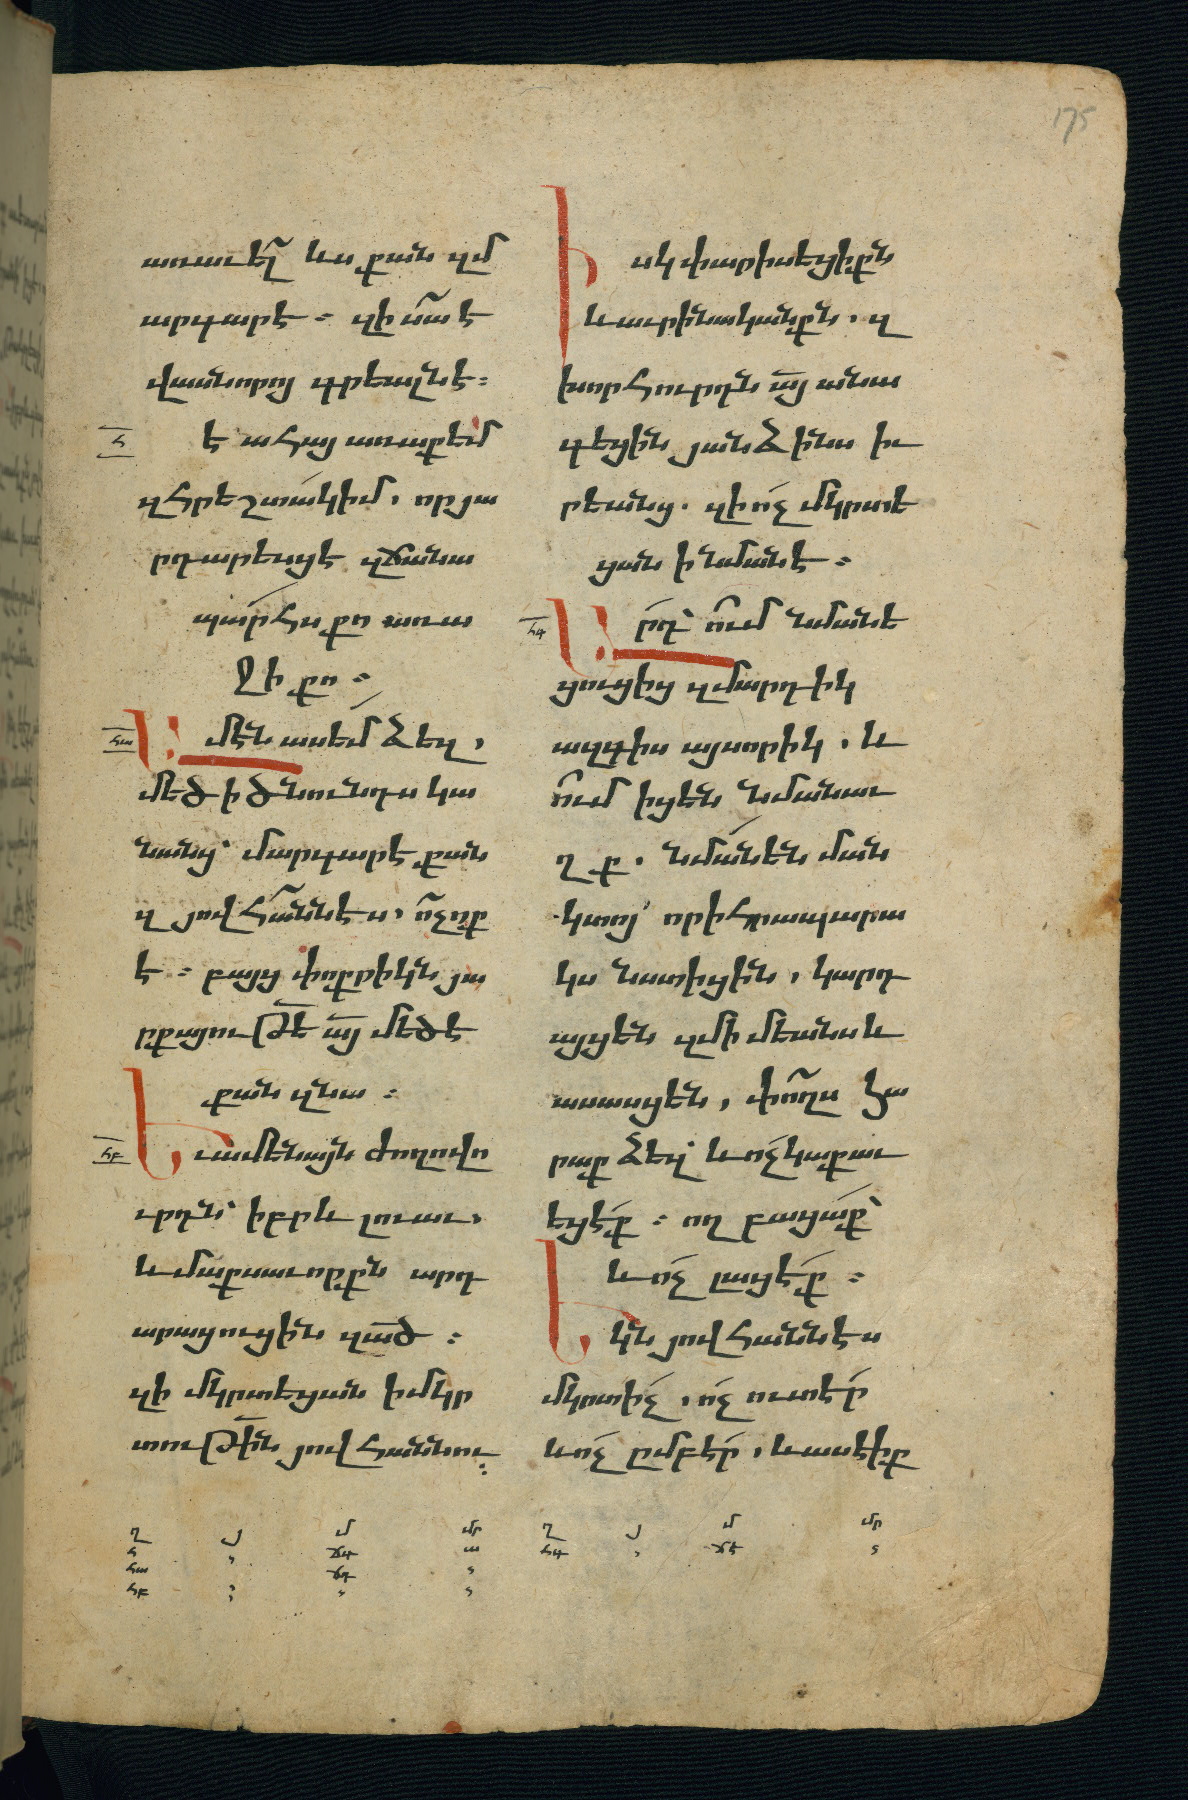 175
առաւել̃ ևս քան զմ
արգարէ ։ զի սա̃ է
վասնորոյ գրեալնէ ։
հ
է ահայ առաքեմ
զհրեշտակիմ, որ յա
րդարեսցէ զճանա
պարհս քո առա
ջի քո ։
հա
Ամէն ասեմ ձեզ,
մեծ ի ծնունդս կա
նանց՝ մարգարէ քան
զ յովհա̃ննէս, ո̃չոք
է ։ բայց փոքրիկն յա
րքայութե̃ ա̃յ մեծ է
քան զնա ։
հբ
Եւ ամենայն ժողովո
ւրդն՝ իբրև լուաւ,
և մաքսաւորքն արդ
արացուցին զա̃ծ ։
զի մկրտեցան ի մկր
տութի̃ն յովհաննու ։
Իսկ փարիսեցիքն
և աւրինականքն, զ
խորհուրդն ա̃յ անա
գեցին յանձինս իւ
րեանց. զի ոչ մկրտե
ցան ի նմանէ ։
հգ
Արդ՝ ո̃ւմ նմանե
ցուցից զմարդիկ
ազգիս այսորիկ, և
ո̃ւմ իցեն նմանաւ
ղք. նմանեն ման
կտոյ՝ որ ի հրապարա
կս նստիցին, կարդ
այցեն զմիմեանս և
ասասցեն, փողս հա
րաք ձեզ՝ և ոչ կաքաւ
եցէք ։ ող բացաք՝
և ոչ լացէք ։
Եկն յովհաննէս
մկրտիչ, ոչ ուտէր
և ոչ ըմբէր, և ասէիք